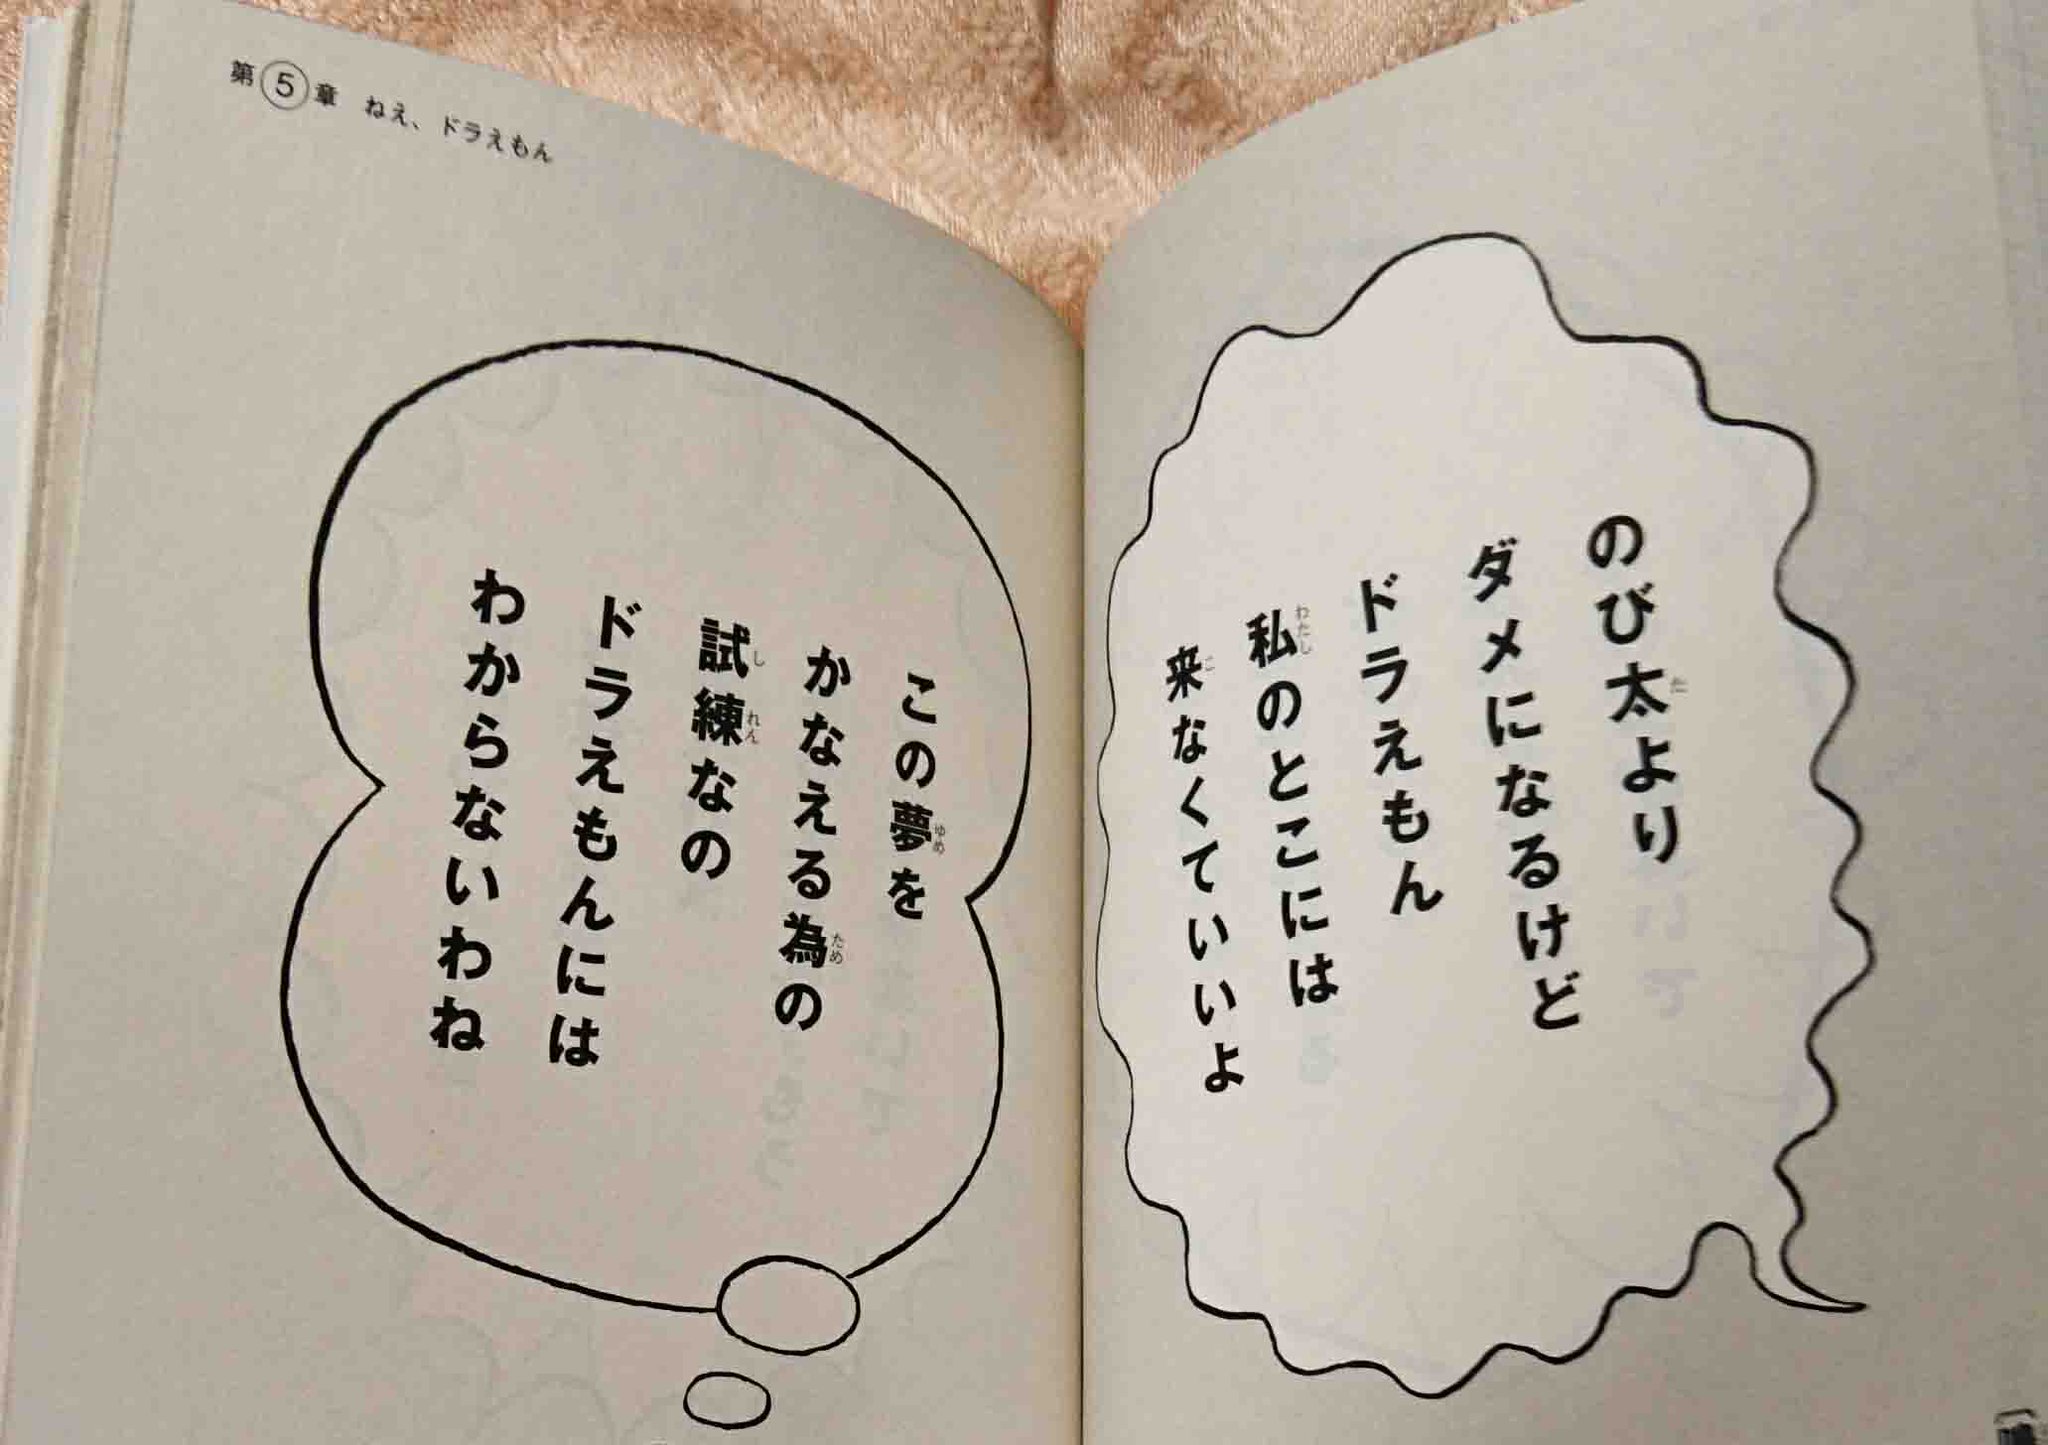 第5章 ねえ、ドラえもん
のび太より
ダメになるけど
ドラえもん
私のとこには
来なくていいよ
この夢を
かなえる為の
試練なの
ドラえもんには
わからないわね